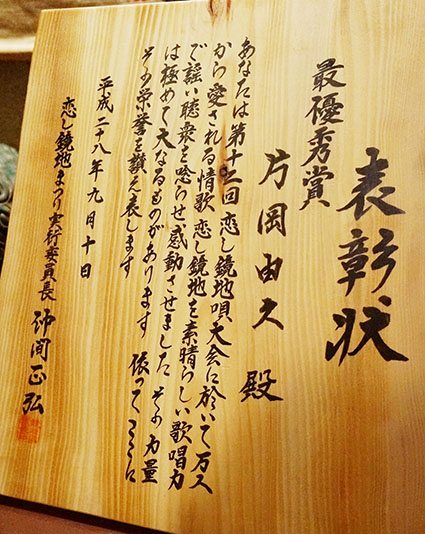 表彰状
最優秀賞
片岡由久 殿
あなたは第十二回 恋し鏡地唄大会に於いて万人
から愛される情歌 恋し鏡地を素晴らしい歌唱力
で謡い聴衆を唸らせ感動させました その力量
は極めて大なるものがあります 依ってここに
その栄誉を讃え表します
平成二十八年九月十日
恋し鏡地まつり実行委員長 仲間正弘